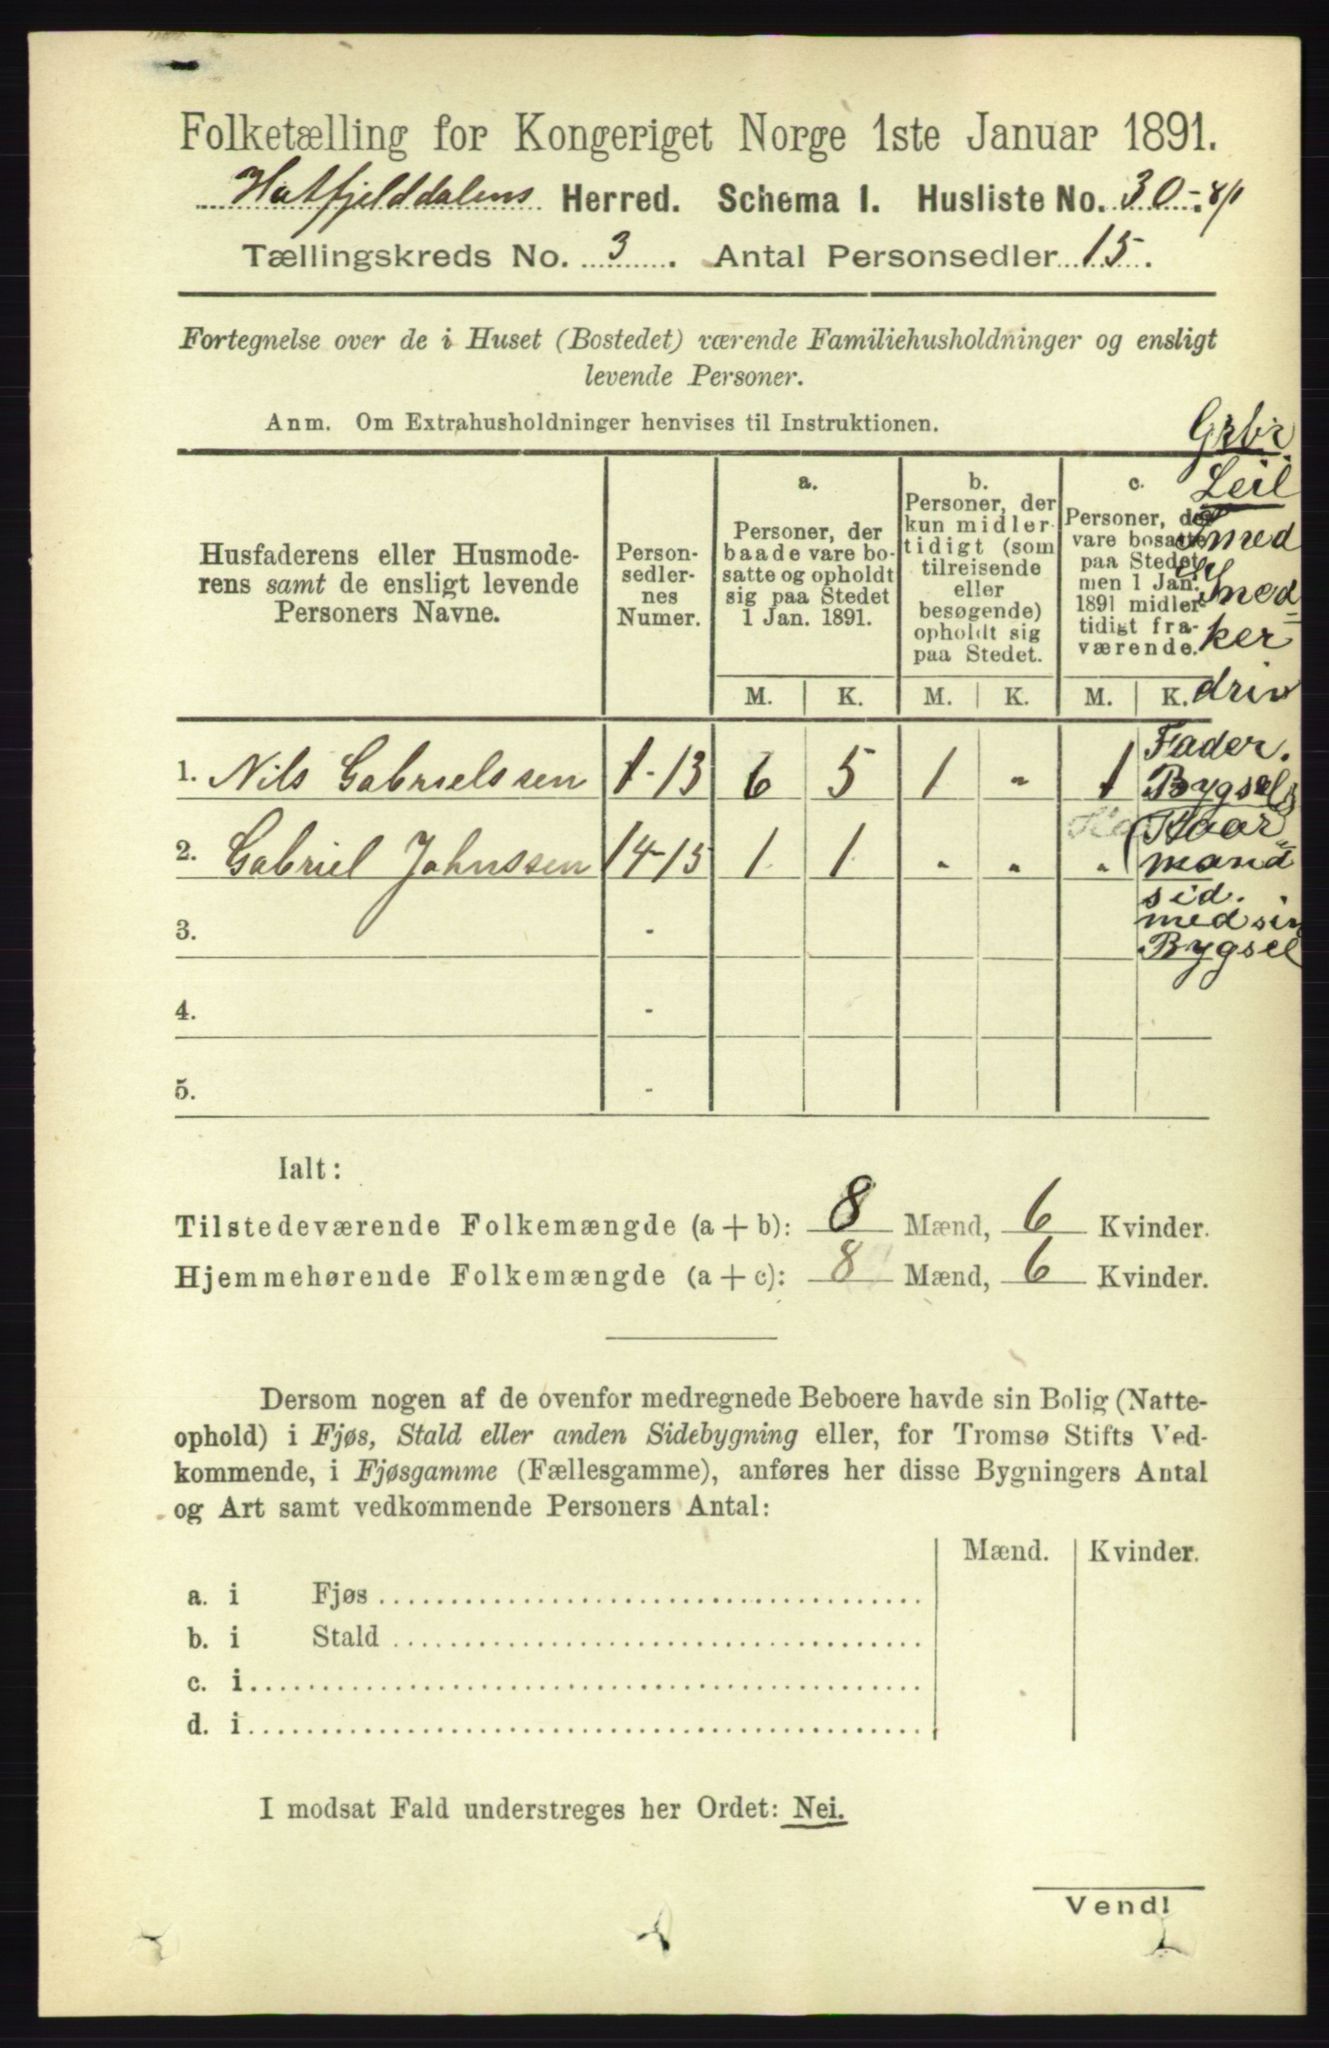 Folketælling for Kongeriget Norge 1ste Januar 1891.
Hatfjelddalens Herred. Schema 1. Husliste No. 30
Tællingskreds No. 3. Antal Personsedler 15.
Fortegnelse over de i Huset (Bostedet) værende Familiehusholdninger og ensligt
levende Personer.
Anm. Om Extrahusholdninger henvises til Instruktionen.
Grbr.
Leil
Smed
Husfaderens eller Husmode-
rens samt de ensligt levende
Personers Navne.
Person-
sedler-
nes
Numer.
a.
Personer, der
baade vare bo-
satte og opholdt
sig paa Stedet
1 Jan. 1891.
b.
Personer, der
kun midler-
tidigt (som
tilreisende
eller
besøgende)
opholdt sig
paa Stedet.
c.
Personer, der
vare bosatte
paa Stedet,
men 1 Jan.
1891 midler-
tidigt fra-
værende.
Smed
ker
driv
M. K. M. K. M. K.
1. Nils Gabrielssen 1-13 6 5 1 - 1
2. Gabriel Johnssen 14-15 1 1 - - -
3. -
4. -
5. -
Fader.
Bygsel
Kaar
mand
sid.
med sin
Bygsel
Ialt:
Tilstedeværende Folkemængde (a + b): 8 Mænd, 6 Kvinder.
Hjemmehørende Folkemængde (a + c): 8 Mænd, 6 Kvinder.
Dersom nogen af de ovenfor medregnede Beboere havde sin Bolig (Natte-
ophold) i Fjøs, Stald eller anden Sidebygning eller, for Tromsø Stifts Ved-
kommende, i Fjøsgamme (Fællesgamme), anføres her disse Bygningers Antal
og Art samt vedkommende Personers Antal:
Mænd. Kvinder.
a. i Fjøs
b. i Stald
c. i
d. i
I modsat Fald understreges her Ordet: Nei.
Vend!